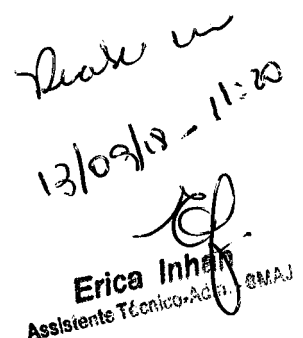 13/09/18 - 11:20
Erica Inhan
Assistente Técnico-Adm. - SMAJ